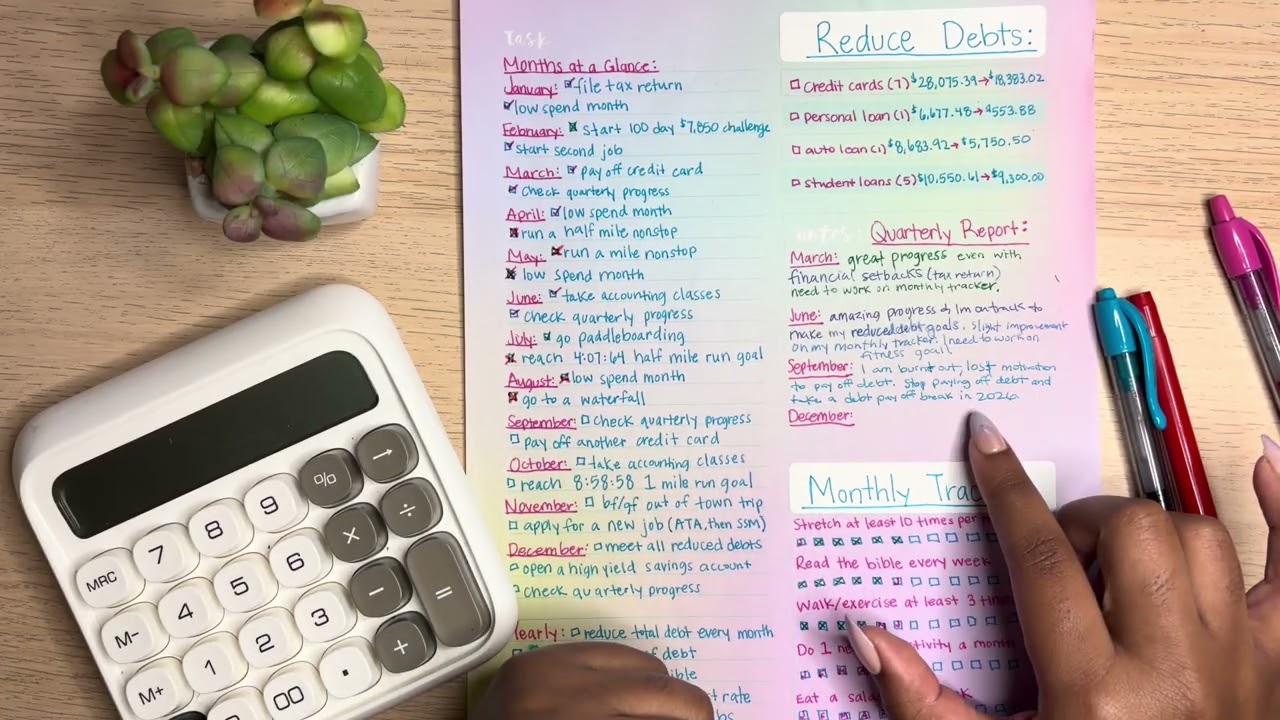 Task
Months at a Glance:
January: file tax return
low spend month
February: start 100 day $7,850 challenge
start second job
March: pay off credit card
check quarterly progress
April: low spend month
run a half mile nonstop
May: run a mile nonstop
low spend month
June: take accounting classes
check quarterly progress
July: go paddleboarding
reach 4:07:64 half mile run goal
August: low spend month
go to a waterfall
September: check quarterly progress
pay off another credit card
October: take accounting classes
reach 8:58:58 1 mile run goal
November: bf/gf out of town trip
apply for a new job (ATA, then SSM)
December: meet all reduced debts
open a high yield savings account
check quarterly progress
Yearly: reduce total debt every month
of debt
ible
t rate
bs
Reduce Debts:
credit cards (7) $28,075.39→$18,383.02
personal loan (1) $6,677.48→$553.88
auto loan (1) $8,683.92→$5,750.50
student loans (5) $10,550.61→$9,300.00
notes: Quarterly Report:
March: great progress even with
financial setbacks (tax return)
need to work on monthly tracker.
June: amazing progress & I'm on track to
make my reduced debt goals. Slight improvement
on my monthly tracker. I need to work on
fitness goal
September: I am burnt out, lost motivation
to pay off debt. Stop paying off debt and
take a debt pay off break in 2026
December:
Monthly Trac
Stretch at least 10 times per
Read the bible every week
Walk/exercise at least 3 tim
Do 1 ne tivity a month
Eat a sala k
J F M A
MRC 7 8 9 % →
M- 4 5 6 × ÷
M+ 1 2 3 − =
0 00 . +